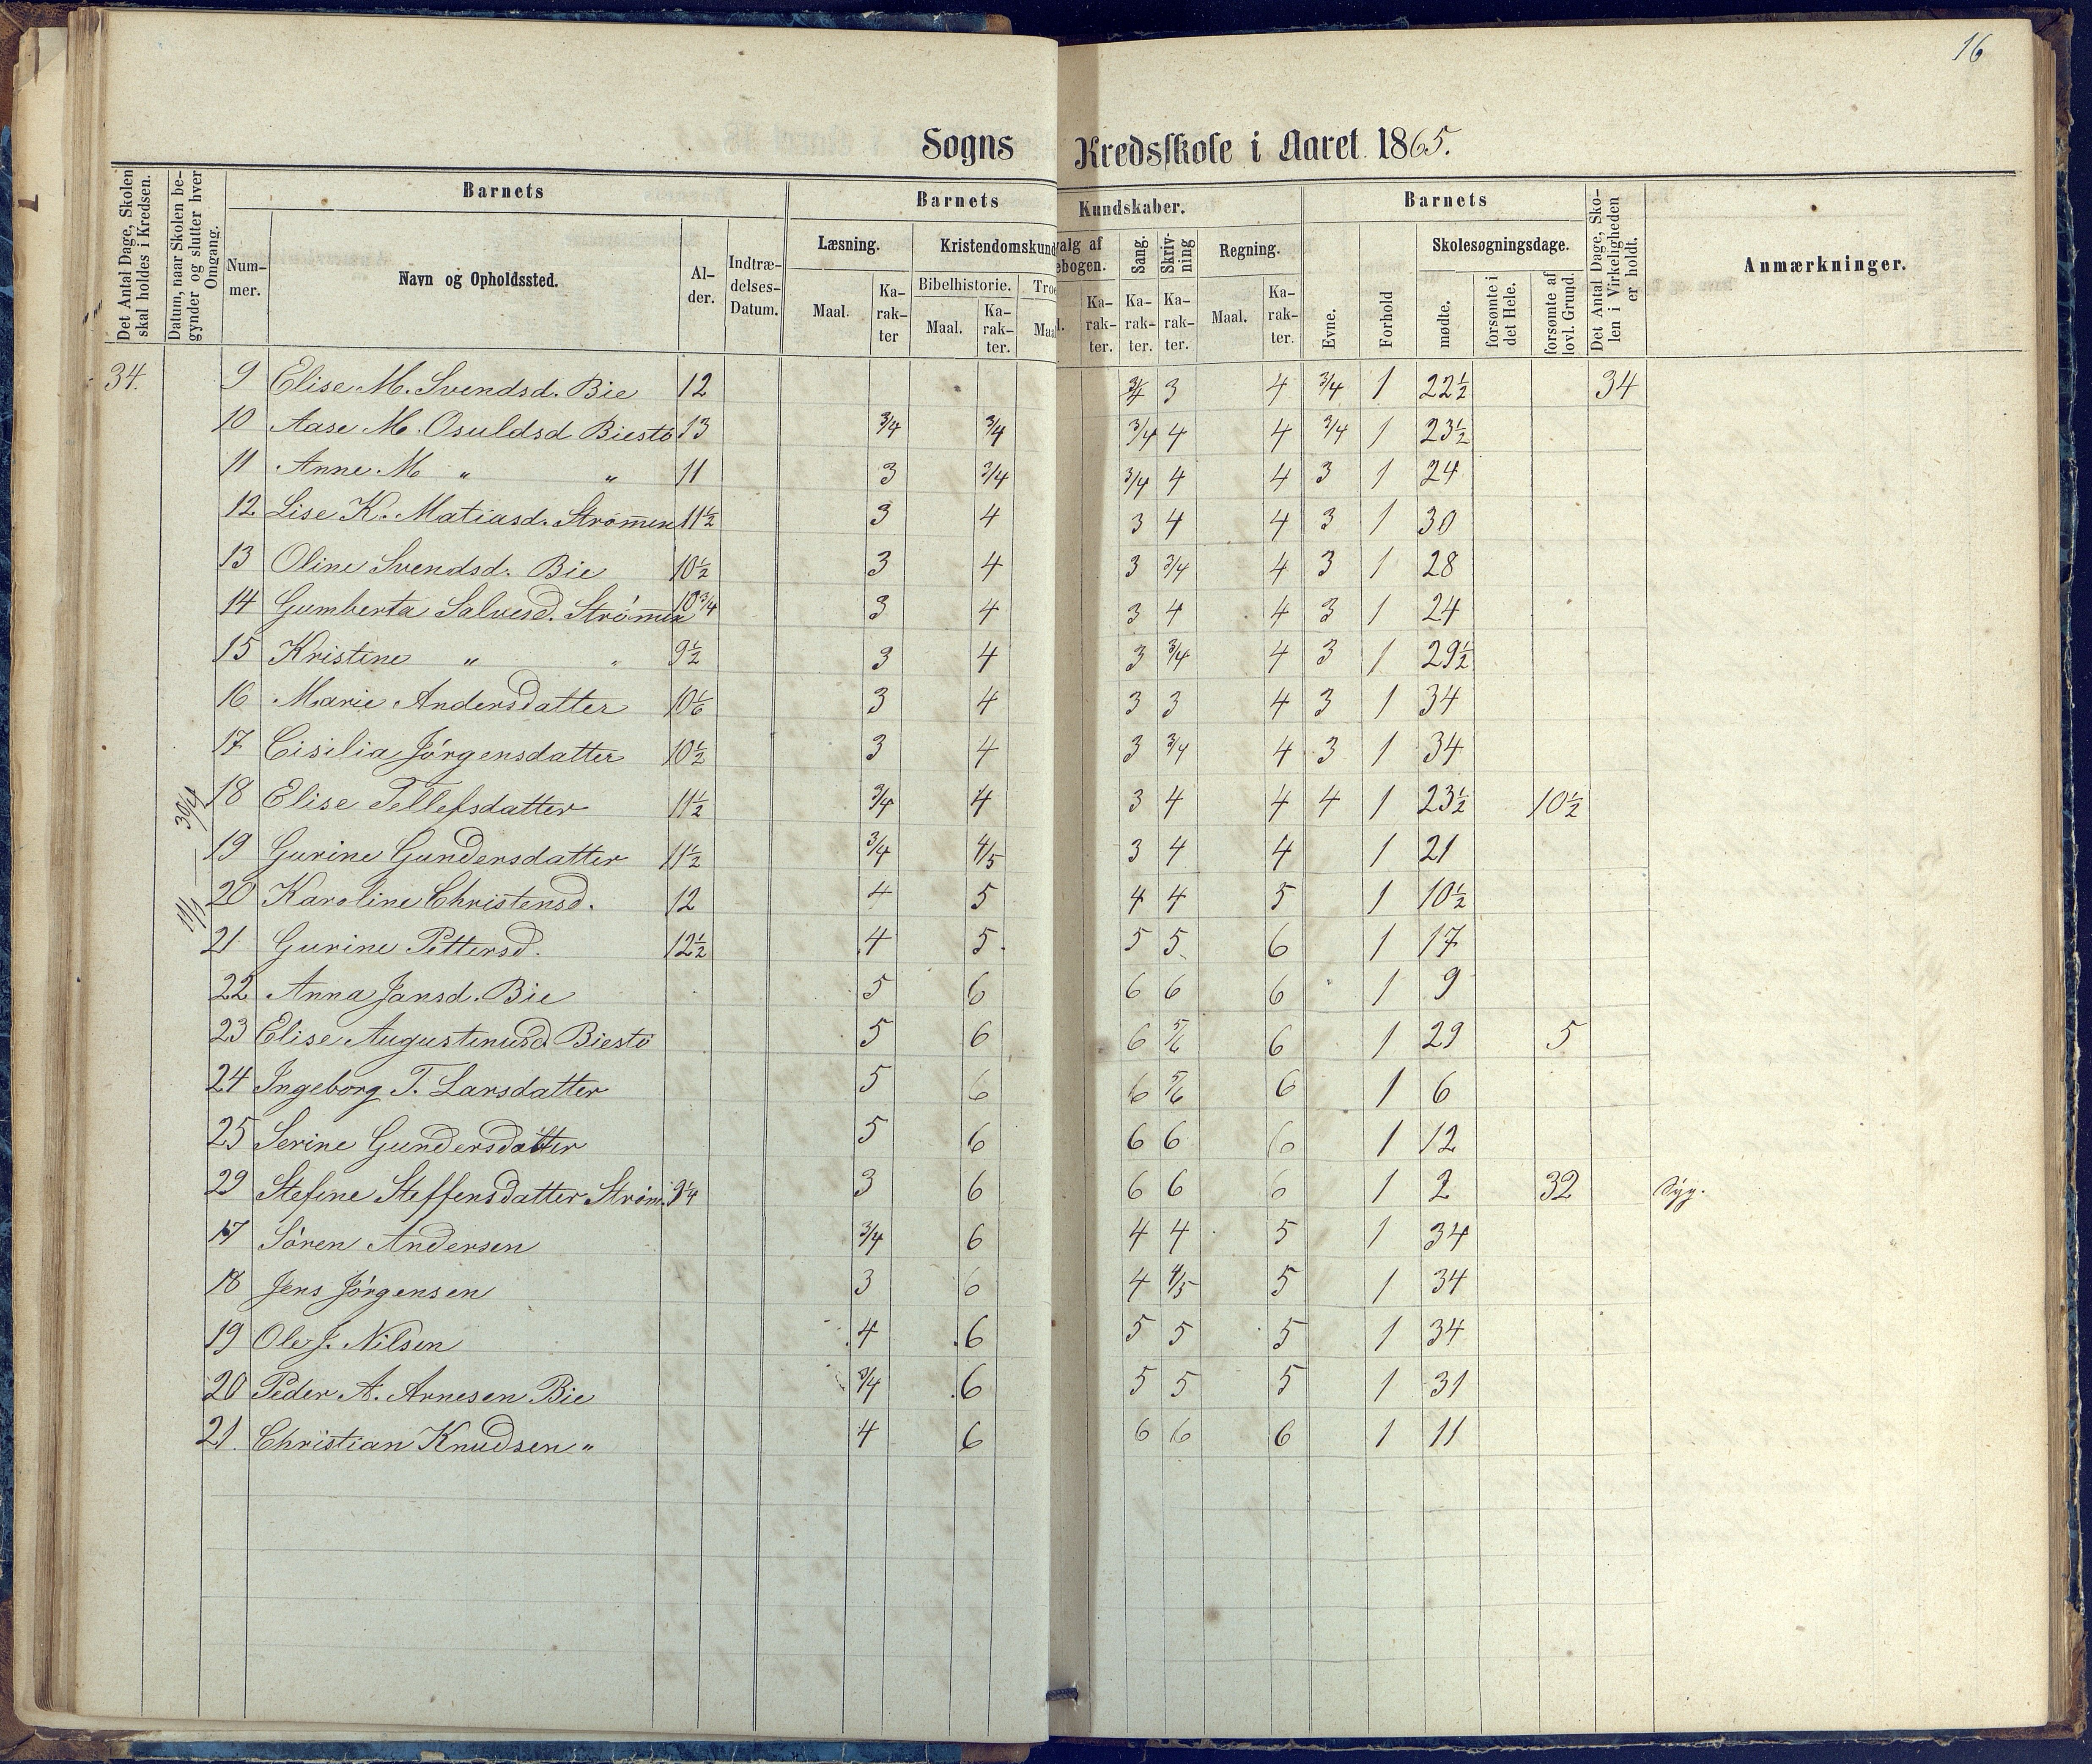 16
Sogns Kredsskole i Aaret 1865.
Det Antal Dage, Skolen skal holdes i Kredsen.
Datum, naar Skolen begynder og slutter hver Omgang.
Barnets
Nummer.
Navn og Opholdssted.
Alder.
Indtrædelses-Datum.
Barnets Kundskaber.
Læsning.
Maal.
Karakter
Kristendomskund
Bibelhistorie.
Maal.
Karakter.
Troe
Maal
valg af
ebogen.
l.
Karakter.
Sang.
Karakter.
Skrivning
Karakter.
Regning.
Maal.
Karakter.
Barnets
Evne.
Forhold
Skolesøgningsdage.
mødte.
forsømte i det Hele.
forsømte af lovl. Grund.
Det Antal Dage, Skolen i Virkeligheden er holdt.
Anmærkninger.
34. 9 Elise M. Svendsd. Bie 12 3/4 3 4 3/4 1 22½ 34
10 Aase M. Osuldsd Biestø 13 3/4 3/4 3/4 4 4 3/4 1 23½
11 Anne M " " 11 3 3/4 3/4 4 4 3 1 24
12 Lise K. Matiasd. Strømmen 11½ 3 4 3 4 4 3 1 30
13 Oline Svendsd. Bie 10½ 3 4 3 3/4 4 3 1 28
14 Gumberta Salvesd. Strømmen 10¾ 3 4 3 4 4 3 1 24
15 Kristine " " 9½ 3 4 3 3/4 4 3 1 29½
16 Marie Andersdatter 10⅙ 3 4 3 3 4 3 1 34
17 Cisilia Jørgensdatter 10½ 3 4 3 3/4 4 3 1 34
11/1 — 30/4
18 Elise Tellefsdatter 11½ 3/4 4 3 4 4 4 1 23½ 10½
19 Gurine Gundersdatter 11½ 3/4 4/5 3 4 4 1 21
20 Karoline Christensd. 12 4 5 4 4 5 1 10½
21 Gurine Pettersd. 12½ 4 5 5 5 6 1 17
22 Anna Jansd. Bie 5 6 6 6 6 1 9
23 Elise Augustinusd Biestø 5 6 6 5/6 6 1 29 5
24 Ingeborg T. Larsdatter 5 6 6 5/6 6 1 6
25 Serine Gundersdatter 5 6 6 6 6 1 12
29 Stefine Steffensdatter Strøm. 9¼ 3 6 6 6 6 1 2 32 Syg.
17 Søren Andersen 3/4 6 4 4 5 1 34
18 Jens Jørgensen 3 6 4 4/5 5 1 34
19 Ole J. Nilsen 4 6 5 5 5 1 34
20 Peder A. Arnesen Bie 3/4 6 5 5 5 1 31
21. Christian Knudsen " 4 6 6 6 6 1 11